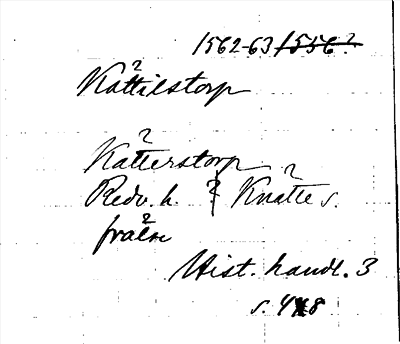 1562-63 /1556?
Kättilstorp
Kätterstorp
Redv. h. ? Knätte s.
frälse
Hist. handl. 3
s. 48